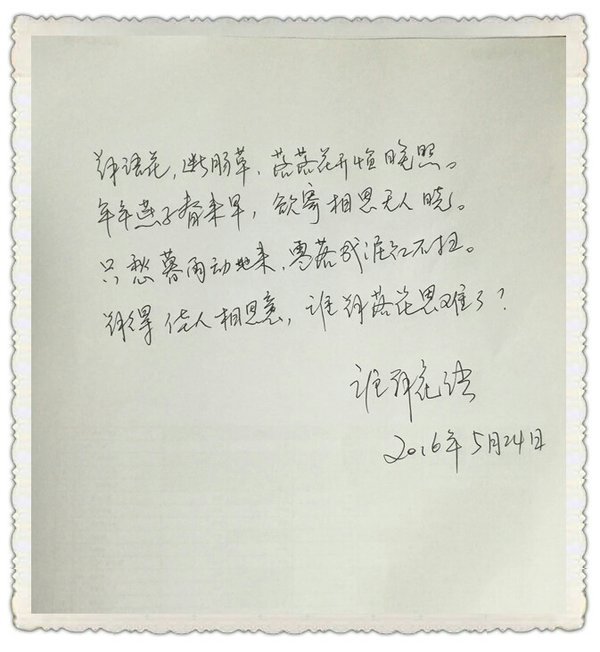 解语花，断肠草，落落花开恒晚照。
年年燕子春来早，欲寄相思无人晓。
只愁暮雨动地来，零落残泪红不扫。
解得佳人相思意，谁解落花思难了？
谁解花语
2016年5月24日